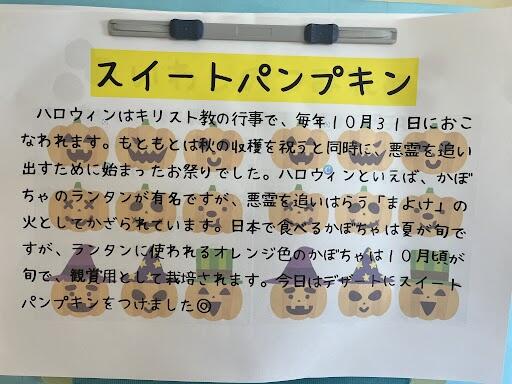 スイートパンプキン
ハロウィンはキリスト教の行事で、毎年１０月３１日におこ
なわれます。もともとは秋の収穫を祝うと同時に、悪霊を追い
出すために始まったお祭りでした。ハロウィンといえば、かぼ
ちゃのランタンが有名ですが、悪霊を追いはらう「まよけ」の
火としてかざられています。日本で食べるかぼちゃは夏が旬で
すが、ランタンに使われるオレンジ色のかぼちゃは１０月頃が
旬で、観賞用として栽培されます。今日はデザートにスイート
パンプキンをつけました◎